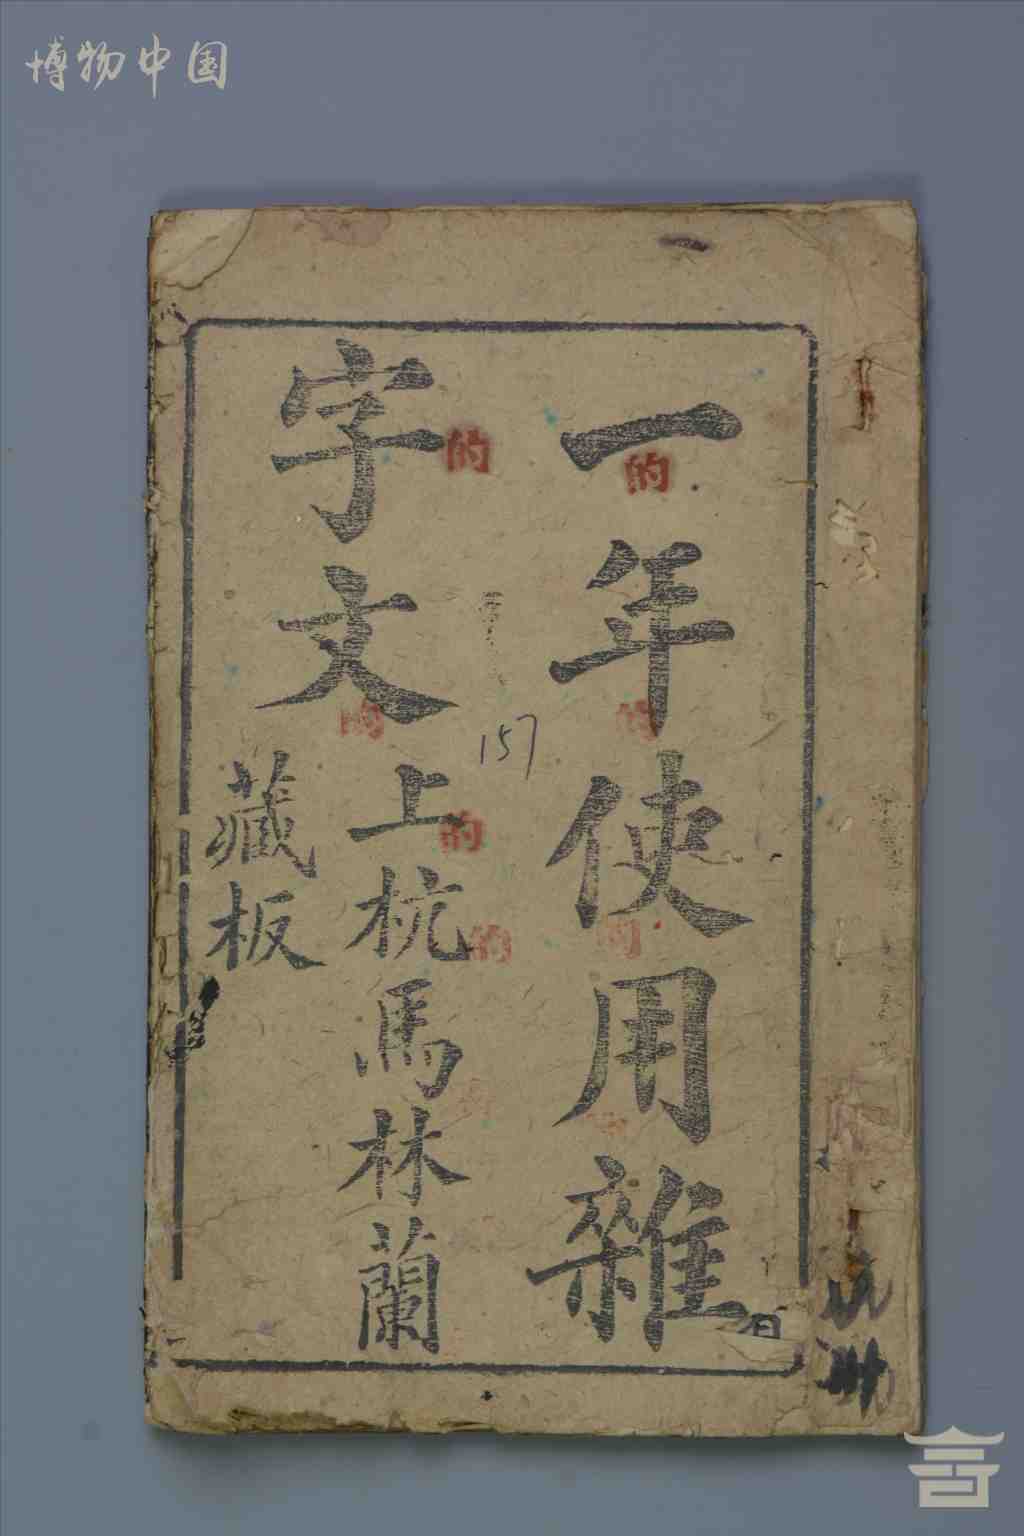 博物中国
一年使用雜
字文
上杭馬林蘭
藏板
157
的
的
的
的
的
的
的